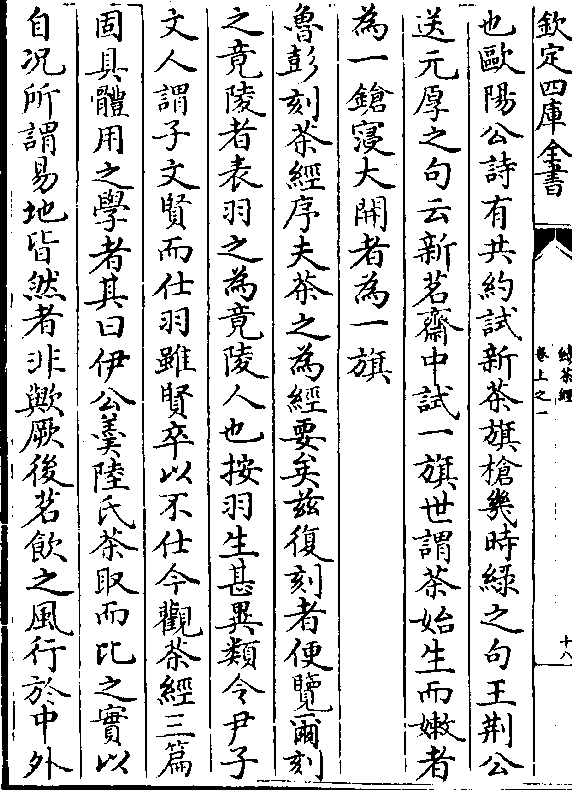 欽定四庫全書
續茶經
卷上之一
十八
也歐陽公詩有共約試新茶旗槍幾時綠之句王荆公
送元厚之句云新茗齋中試一旗世謂茶始生而嫩者
為一鎗寖大開者為一旗
魯彭刻茶經序夫茶之為經要矣兹復刻者便覽爾刻
之竟陵者表羽之為竟陵人也按羽生甚異類令尹子
文人謂子文賢而仕羽雖賢卒以不仕今觀茶經三篇
固具體用之學者其曰伊公羮陸氏茶取而比之實以
自况所謂易地皆然者非歟厥後茗飲之風行於中外